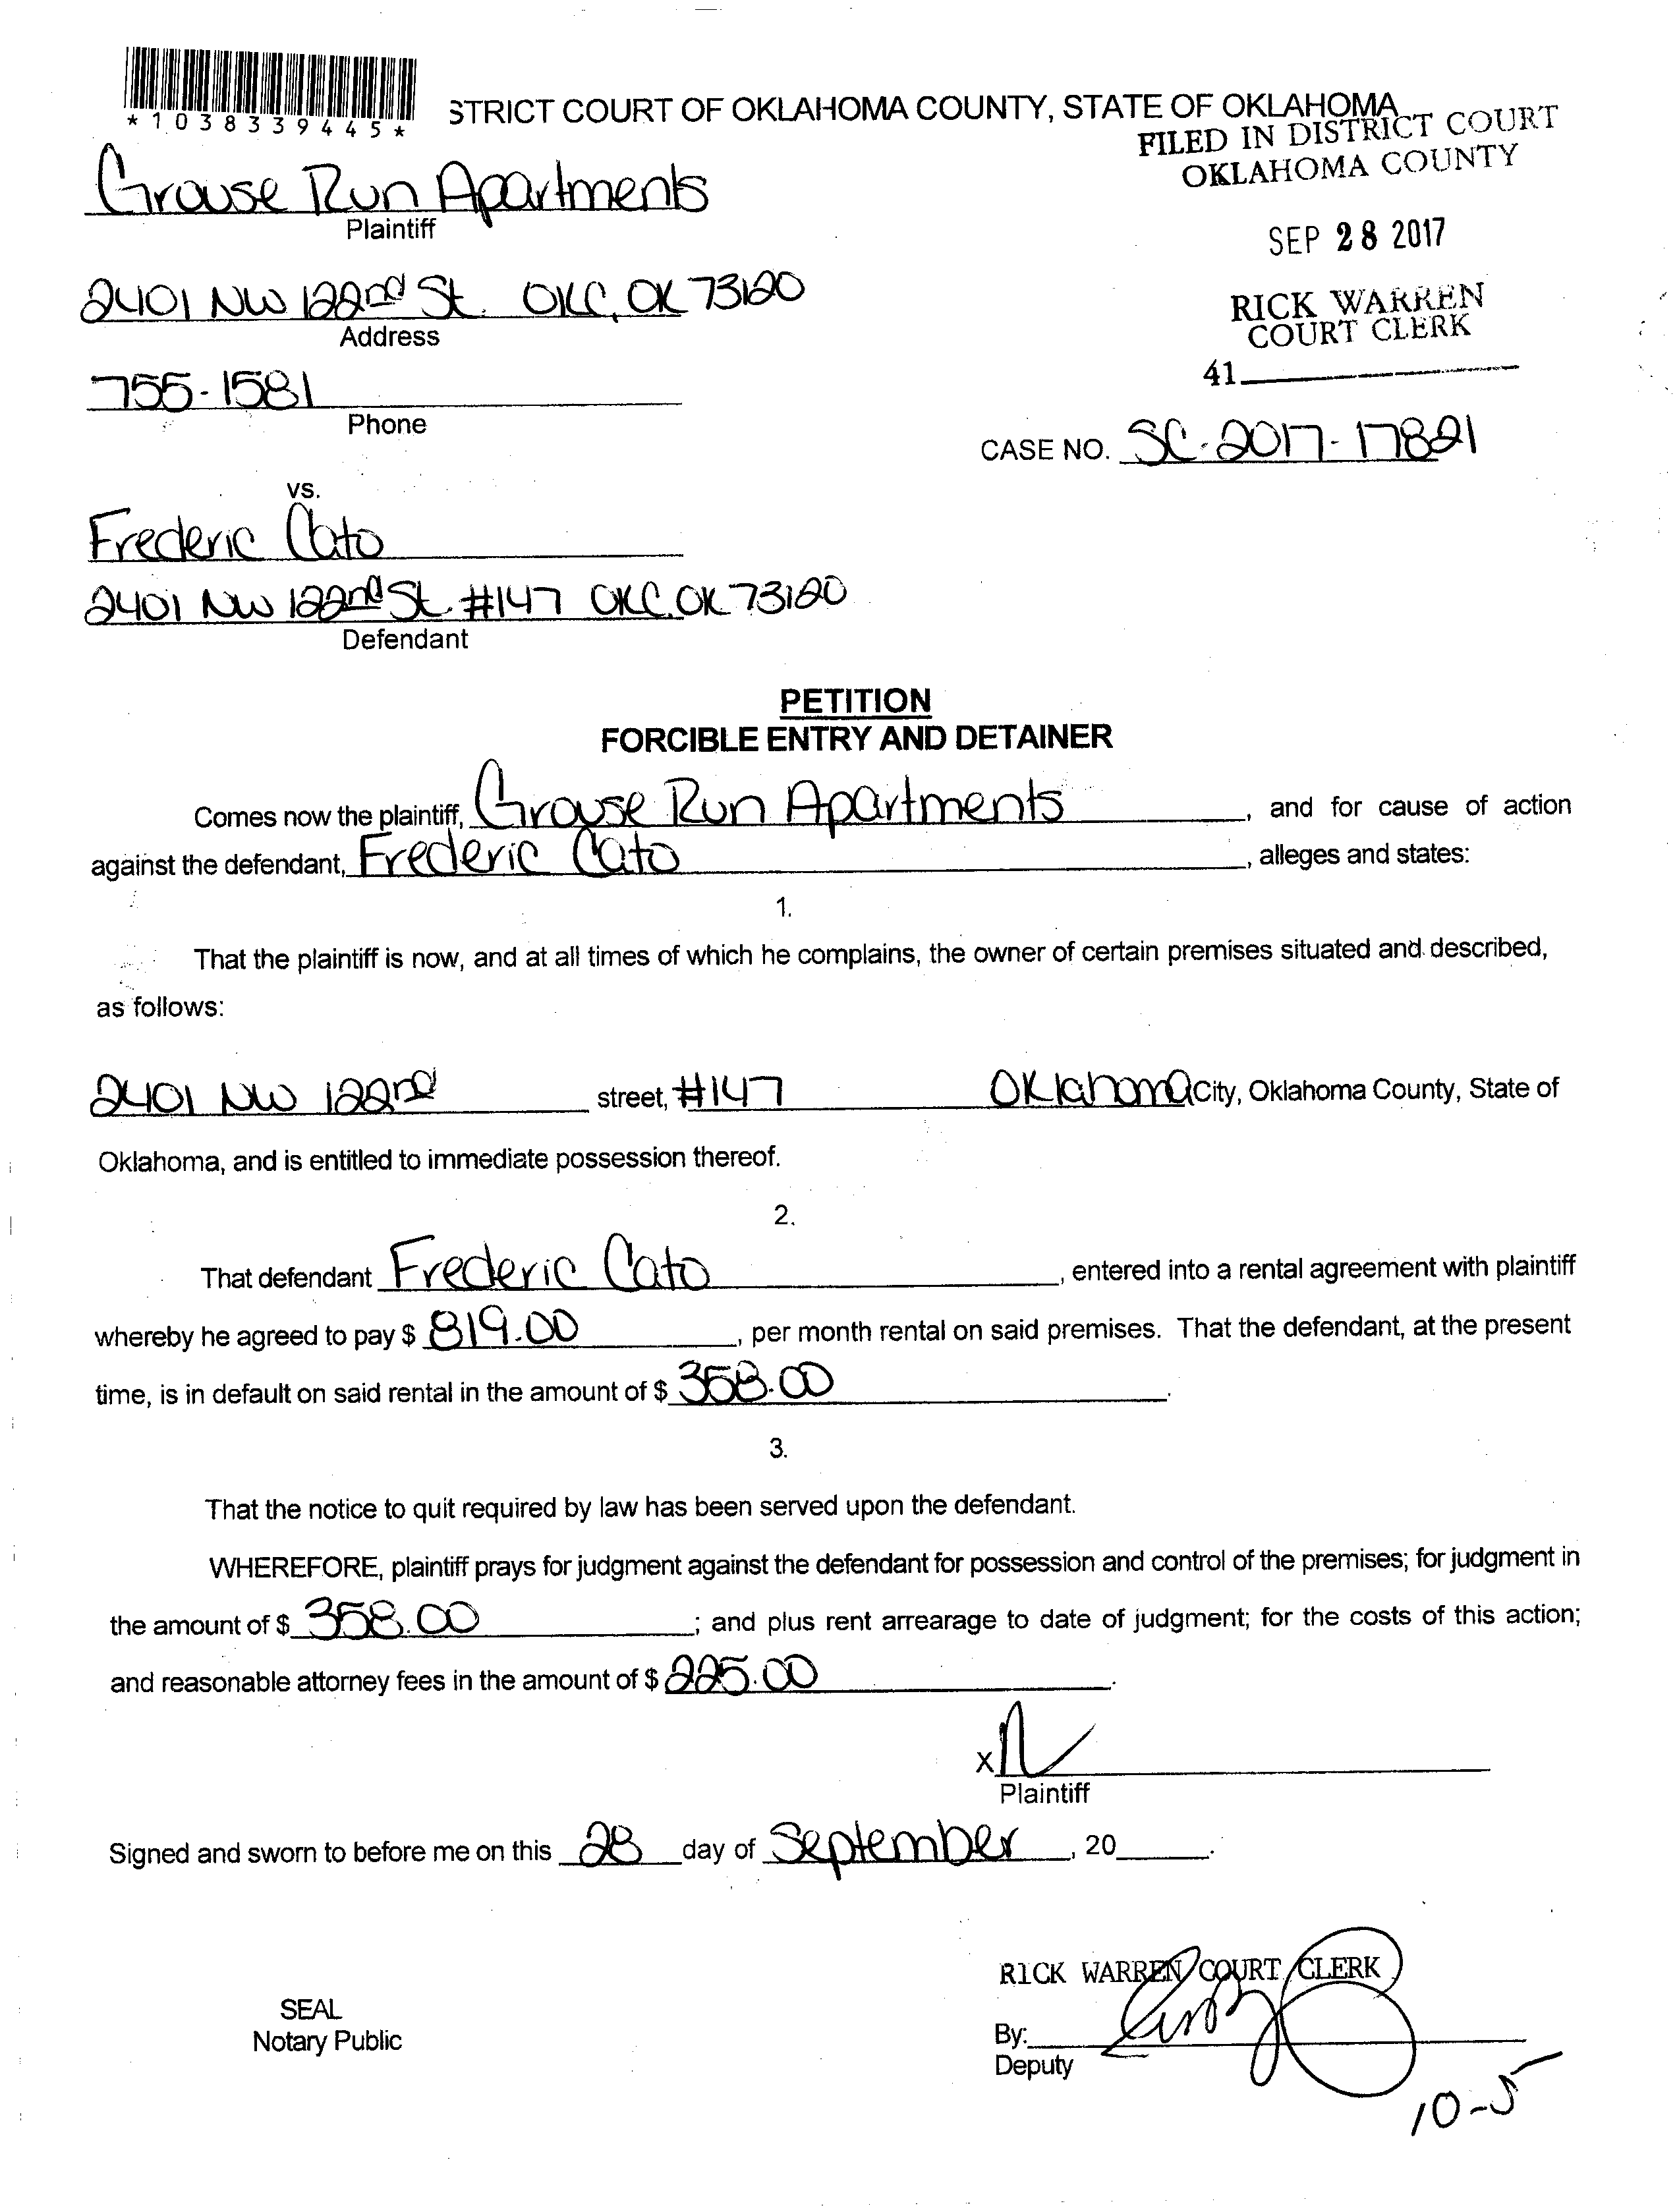 *1038339445*
STRICT COURT OF OKLAHOMA COUNTY, STATE OF OKLAHOMA
FILED IN DISTRICT COURT
OKLAHOMA COUNTY
Grouse Run Apartments
Plaintiff
SEP 28 2017
2401 NW 122nd St. OKC, OK 73120
Address
RICK WARREN
COURT CLERK
41
755-1581
Phone
CASE NO. SC-2017-17821
vs.
Frederic Cato
2401 NW 122nd St. #147 OKC, OK 73120
Defendant
PETITION
FORCIBLE ENTRY AND DETAINER
Comes now the plaintiff, Grouse Run Apartments, and for cause of action
against the defendant, Frederic Cato, alleges and states:
1.
That the plaintiff is now, and at all times of which he complains, the owner of certain premises situated and described,
as follows:
2401 NW 122nd street, #147 Oklahoma City, Oklahoma County, State of
Oklahoma, and is entitled to immediate possession thereof.
2.
That defendant Frederic Cato, entered into a rental agreement with plaintiff
whereby he agreed to pay $ 819.00, per month rental on said premises. That the defendant, at the present
time, is in default on said rental in the amount of $ 358.00.
3.
That the notice to quit required by law has been served upon the defendant.
WHEREFORE, plaintiff prays for judgment against the defendant for possession and control of the premises; for judgment in
the amount of $ 358.00; and plus rent arrearage to date of judgment; for the costs of this action;
and reasonable attorney fees in the amount of $ 225.00.
X
Plaintiff
Signed and sworn to before me on this 28 day of September, 20____.
RICK WARREN COURT CLERK
SEAL
Notary Public
By:
Deputy
10-5